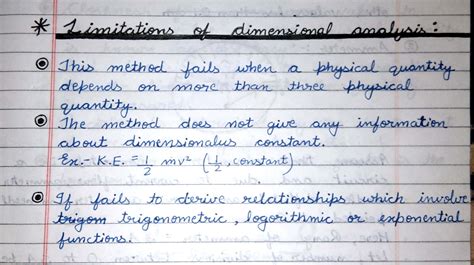 * Limitations of dimensional analysis :
◉ This method fails when a physical quantity
depends on more than three physical
quantity.
◉ The method does not give any information
about dimensionalus constant.
Ex.- K.E. = 1/2 mv² (1/2, constant)
◉ If fails to derive relationships which involve
trigom trigonometric, logorithmic or exponential
functions.